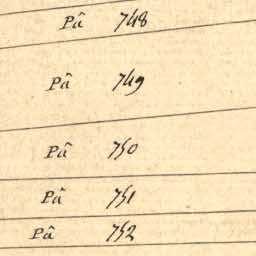 Pâ 748
Pâ 749
Pâ 750
Pâ 751
Pâ 752